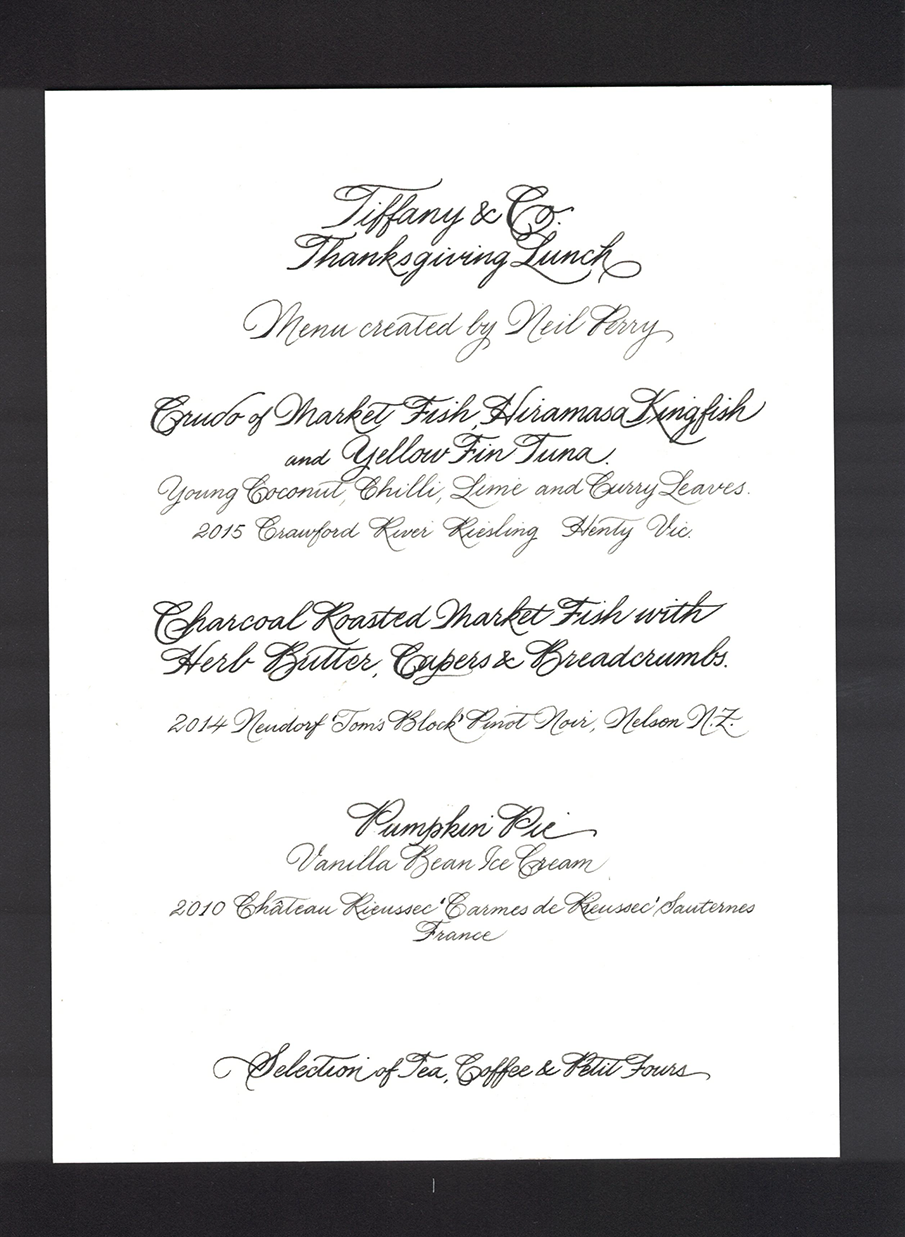 Tiffany & Co.
Thanksgiving Lunch
Menu created by Neil Perry
Crudo of Market Fish, Hiramasa Kingfish
and Yellow Fin Tuna.
Young Coconut, Chilli, Lime and Curry Leaves.
2015 Crawford River Riesling Henty Vic.
Charcoal Roasted Market Fish with
Herb Butter, Capers & Breadcrumbs.
2014 Neudorf 'Tom's Block' Pinot Noir, Nelson N.Z.
Pumpkin Pie
Vanilla Bean Ice Cream
2010 Château Rieussec 'Carmes de Rieussec' Sauternes
France
Selection of Tea, Coffee & Petit Fours